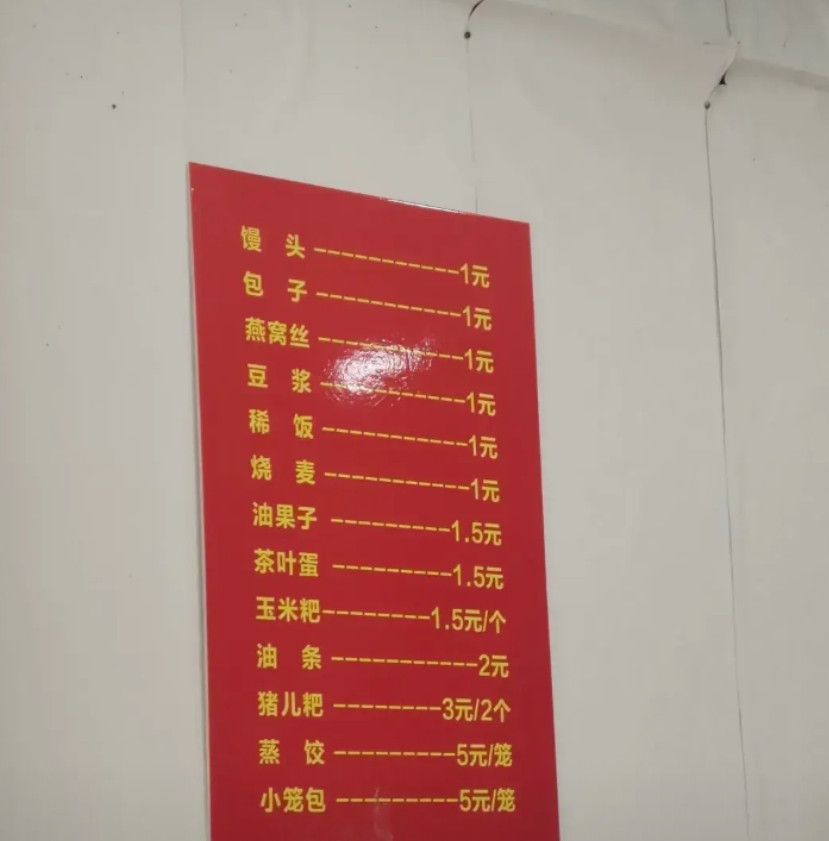 馒头-----------1元
包子-----------1元
燕窝丝-----------1元
豆浆-----------1元
稀饭-----------1元
烧麦-----------1元
油果子---------1.5元
茶叶蛋---------1.5元
玉米粑--------1.5元/个
油条-----------2元
猪儿粑--------3元/2个
蒸饺---------5元/笼
小笼包---------5元/笼